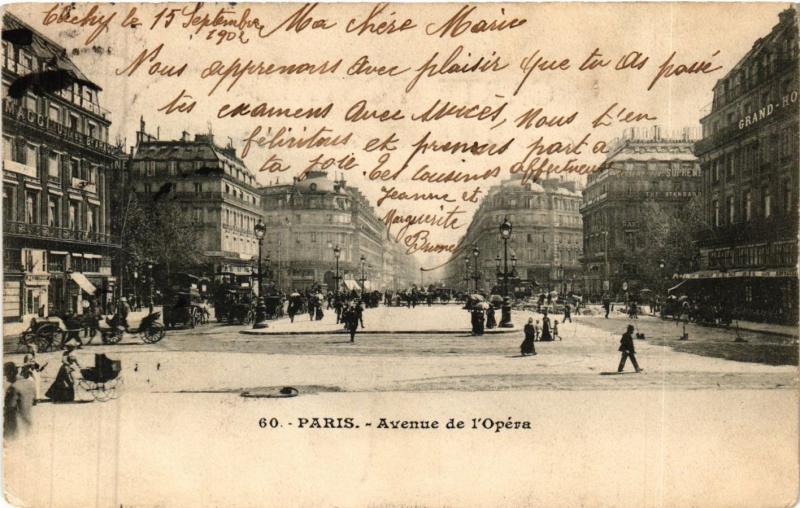 Clichy le 15 Septembre
1902
Ma chère Marie
Nous apprenons avec plaisir que tu as passé
tes examens avec succès, Nous t'en
féliritons et prenons part a
ta joie. Tes cousines affectueuses
Jeanne et
Marguerite
GRAND-HO
THE STANDARD
60. - PARIS. - Avenue de l'Opéra